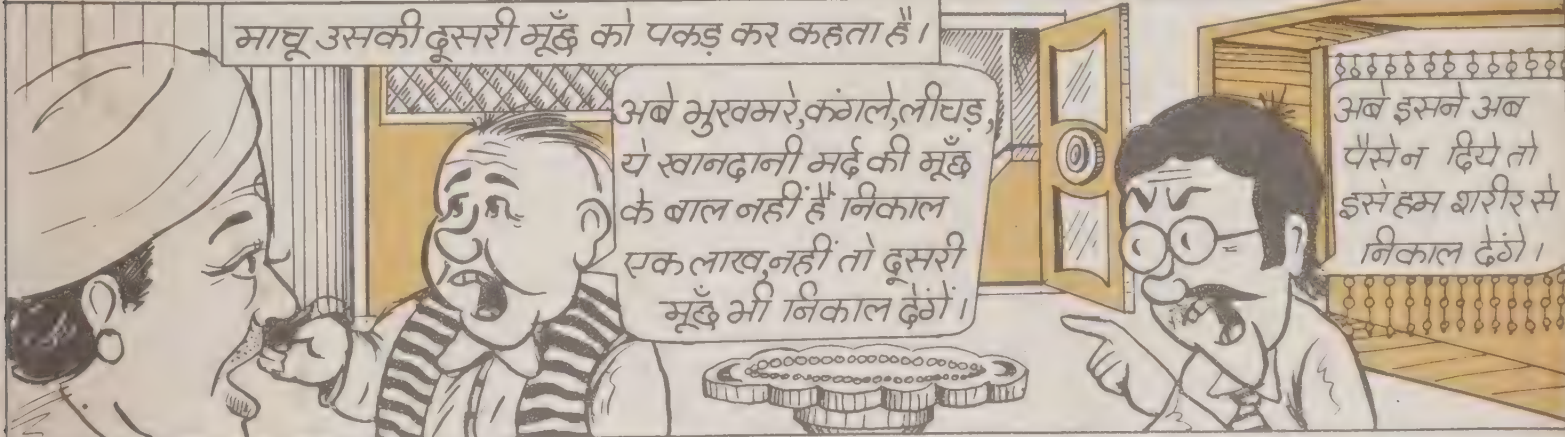 माघू उसकी दूसरी मूँछ को पकड़ कर कहता है।
अबे भुखमरे,कंगले,लीचड़,
ये खानदानी मर्द की मूँछ
के बाल नहीं हैं निकाल
एक लाख,नहीं तो दूसरी
मूँछ भी निकाल देगें।
अबे इसने अब
पैसे न दिये तो
इसे हम शरीर से
निकाल देगें।